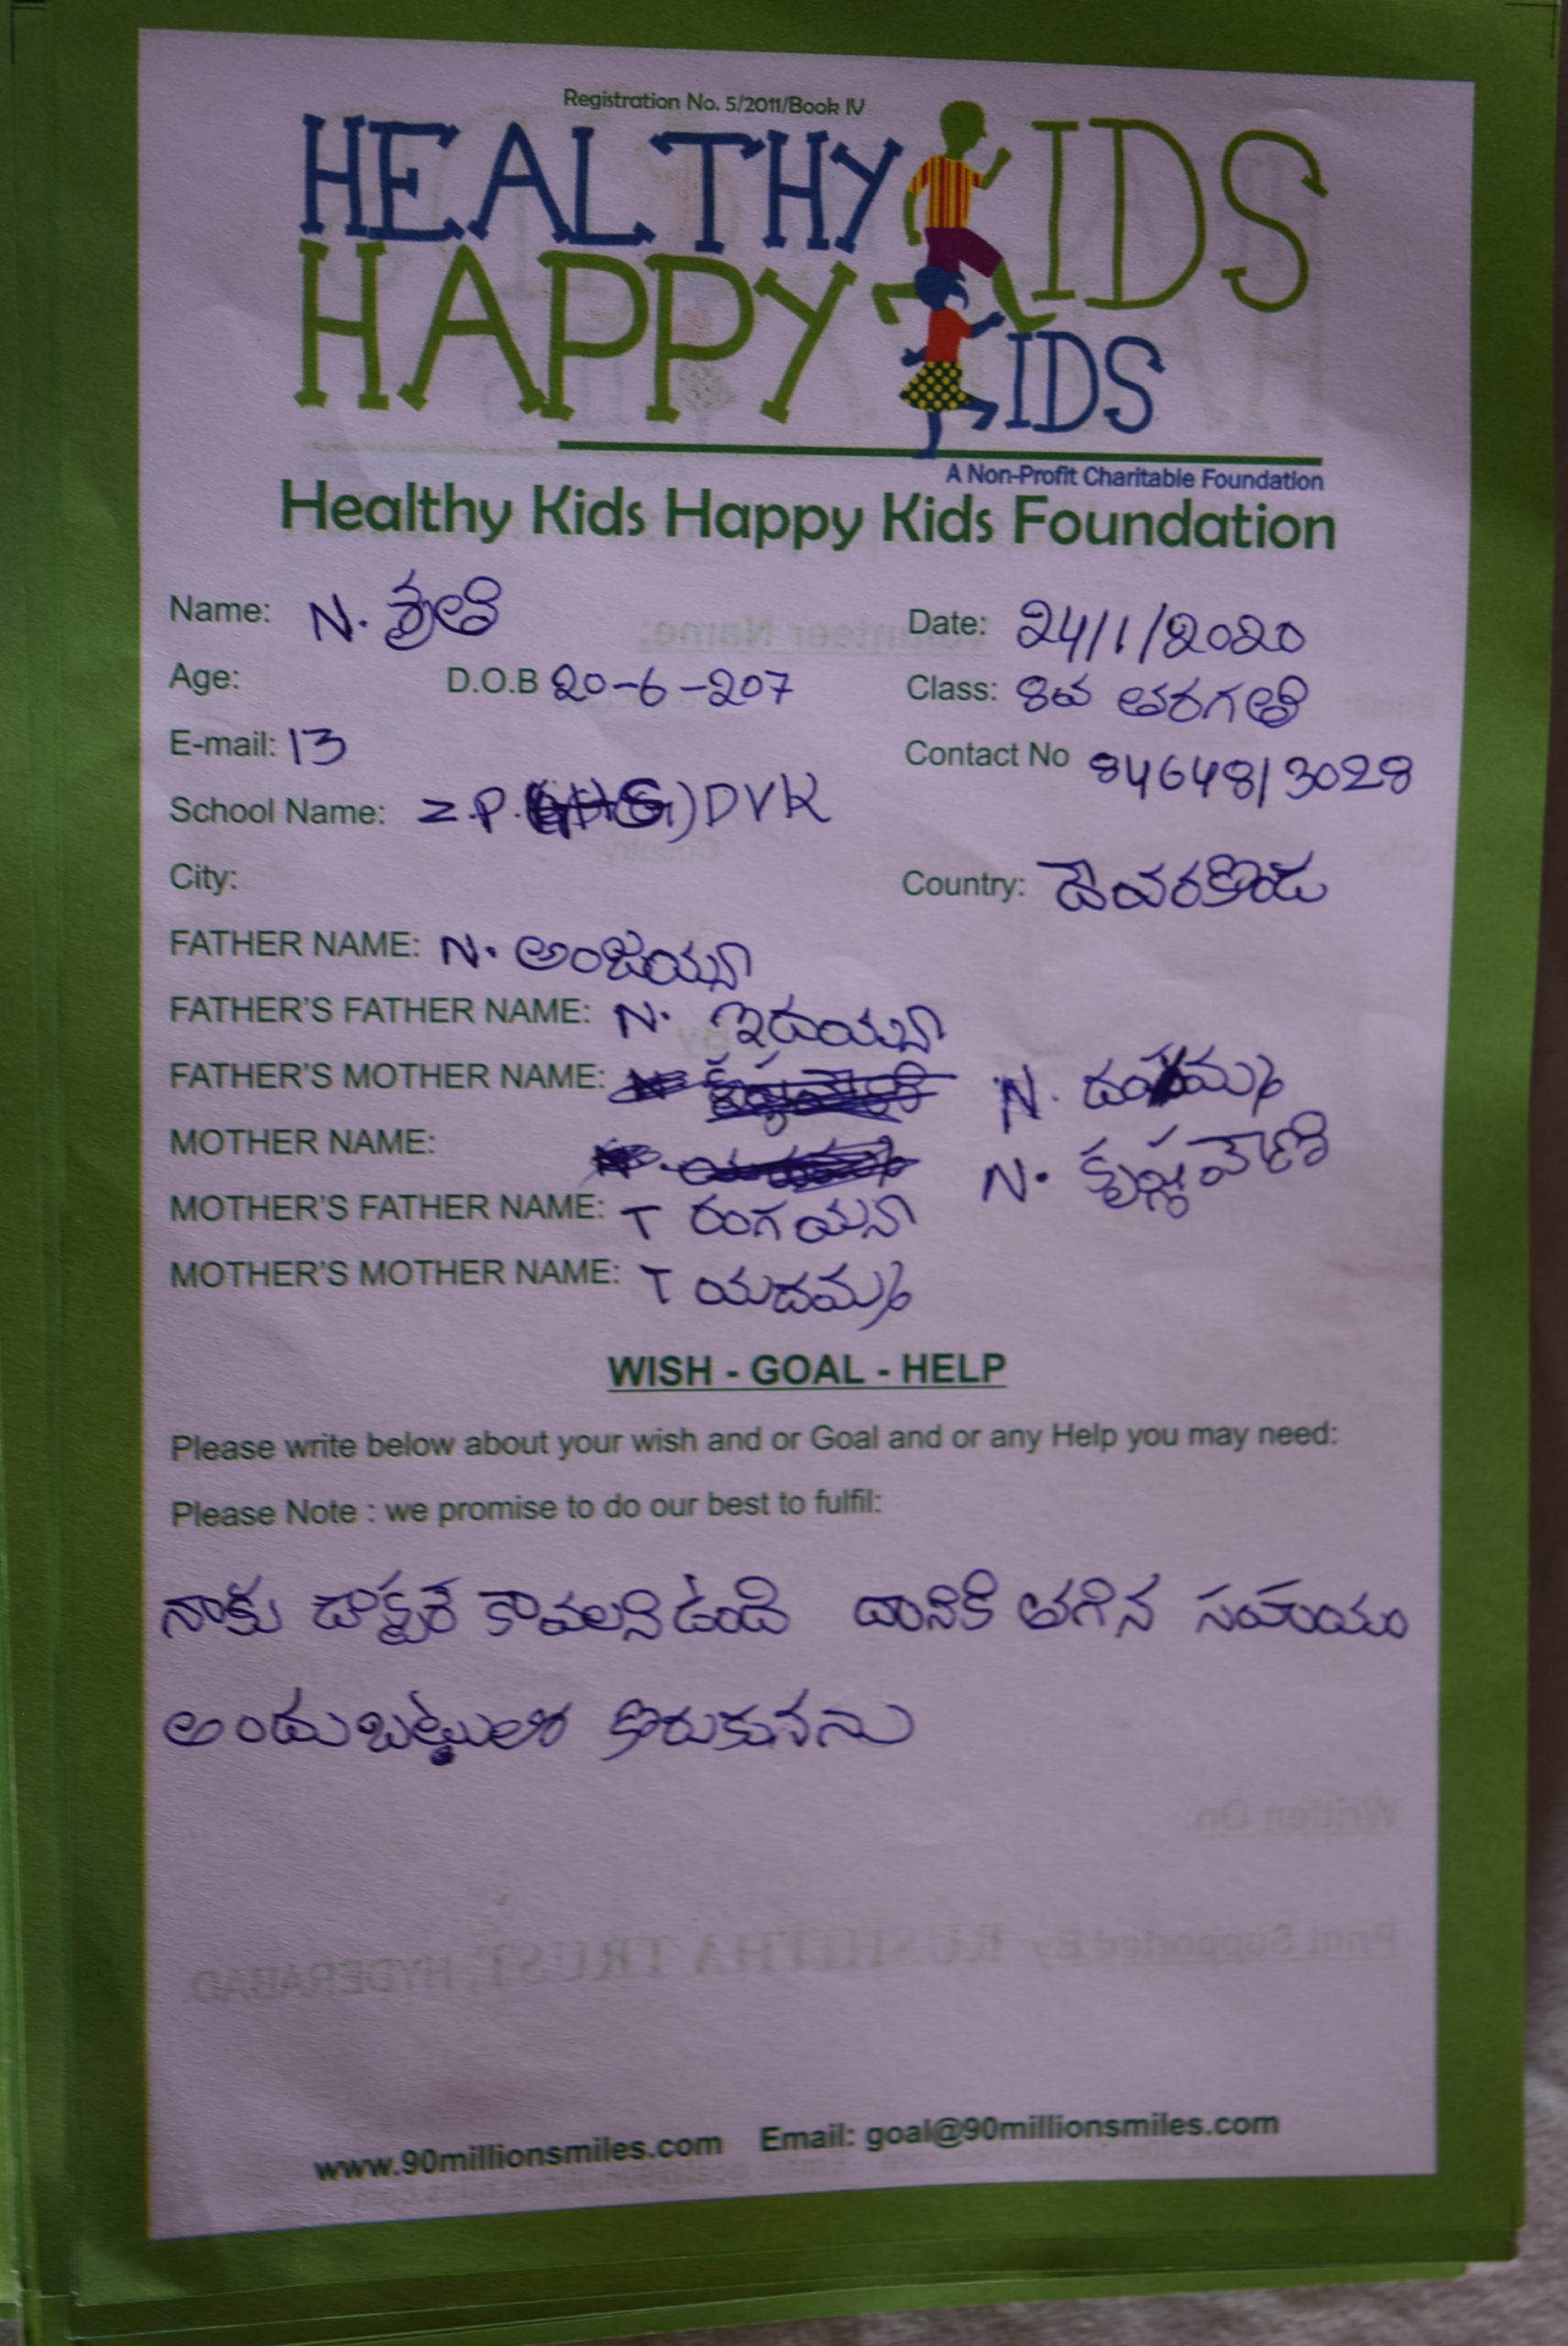 Registration No. 5/2011/Book IV
HEALTHY KIDS
HAPPY KIDS
A Non-Profit Charitable Foundation
Healthy Kids Happy Kids Foundation
Name: N. శ్రుతి Date: 24/1/2020
Age: D.O.B 20-6-207 Class: 8వ తరగతి
E-mail: 13 Contact No 8464813028
School Name: Z.P. DVK
City: Country: దేవరకొండ
FATHER NAME: N. అంజయ్యా
FATHER'S FATHER NAME: N. ఇదయ్యా
FATHER'S MOTHER NAME: N.
MOTHER NAME: N. కృష్ణవేణి
MOTHER'S FATHER NAME: T రంగయనా
MOTHER'S MOTHER NAME: T యదమ్మ
WISH - GOAL - HELP
Please write below about your wish and or Goal and or any Help you may need:
Please Note : we promise to do our best to fulfil:
నాకు డాక్టర్ కావలని ఉంది దానికి తగిన సహయం
అందుబట్టులో కొరుకునను
www.90millionsmiles.com Email: goal@90millionsmiles.com